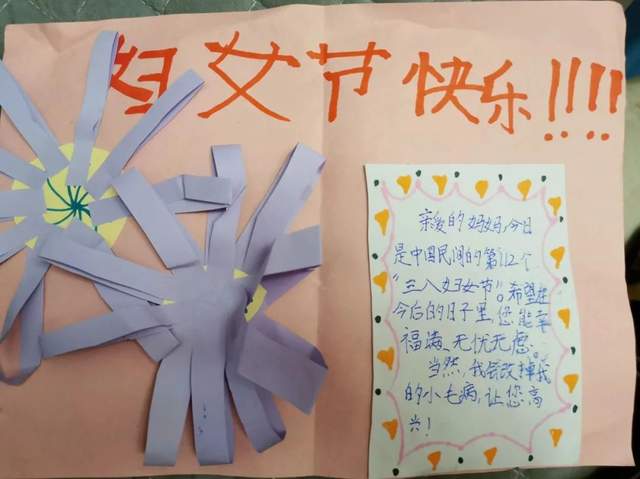 妇女节快乐!!!!
亲爱的妈妈,今日
是中国民间的第112个
“三八妇女节”。希望在
今后的日子里,您能幸
福满,无忧无虑。
当然,我会改掉我
的小毛病,让您高
兴!